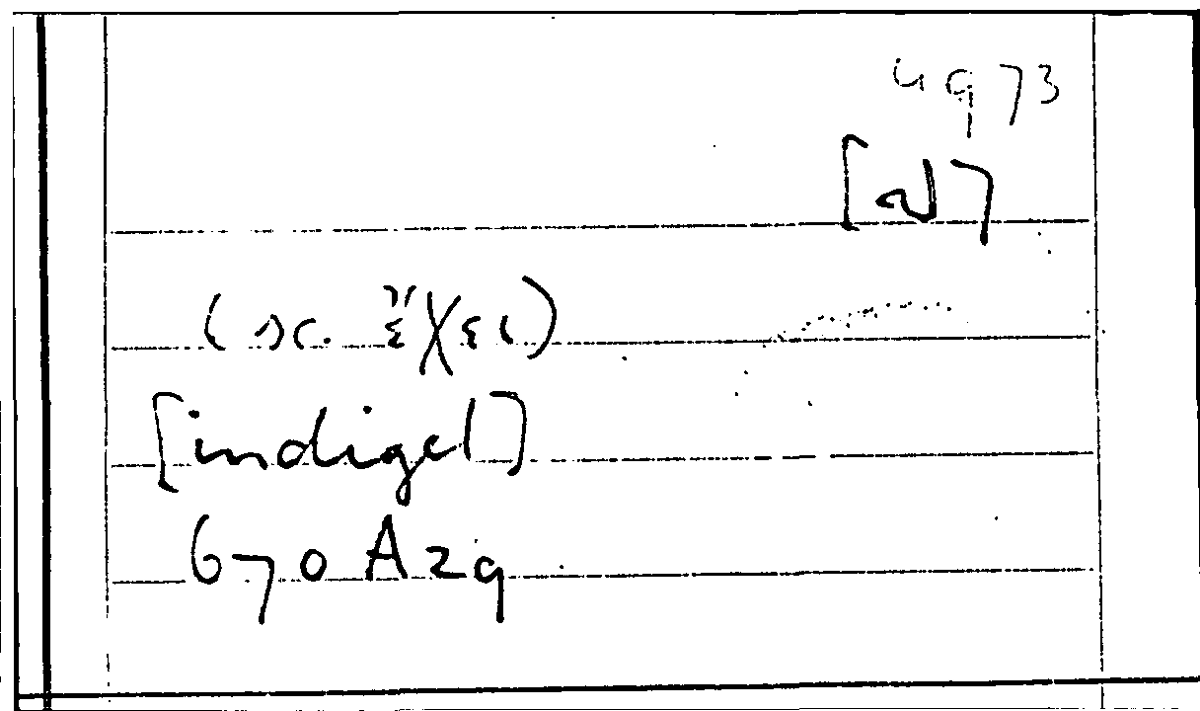 4973
[a]
(sc. ἔχει)
[indiget]
670 A29